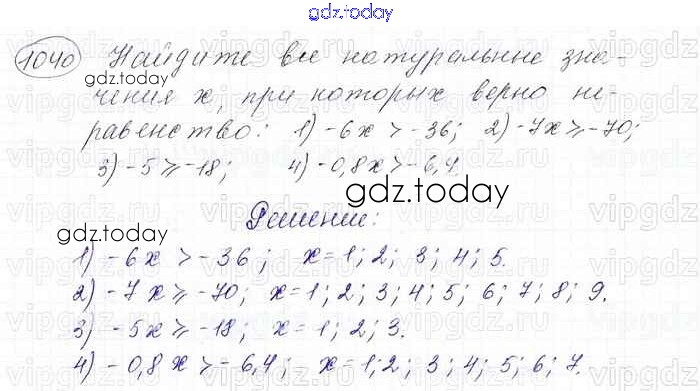 gdz.today
1040 Найдите все натуральные зна-
gdz.today
чения x, при которых верно не-
равенство: 1) -6x > -36; 2) -7x ⩾ -70;
3) -5 ⩾ -18; 4) -0,8x > -6,4.
gdz.today
Решение:
gdz.today
1) -6x > -36; x = 1; 2; 3; 4; 5.
2) -7x ⩾ -70; x = 1; 2; 3; 4; 5; 6; 7; 8; 9.
3) -5x ⩾ -18; x = 1; 2; 3.
4) -0,8x > -6,4; x = 1; 2; 3; 4; 5; 6; 7.